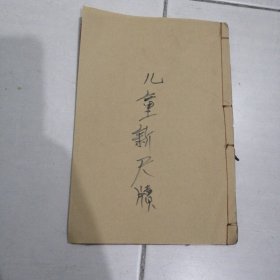 儿童新尺牍